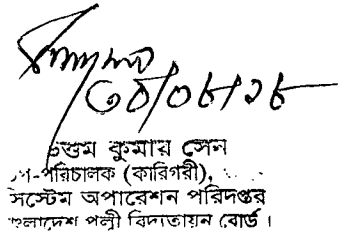 ৩০/০৮/২৮
উত্তম কুমার সেন
উপ-পরিচালক (কারিগরী),
সিস্টেম অপারেশন পরিদপ্তর
বাংলাদেশ পল্লী বিদ্যুতায়ন বোর্ড ।